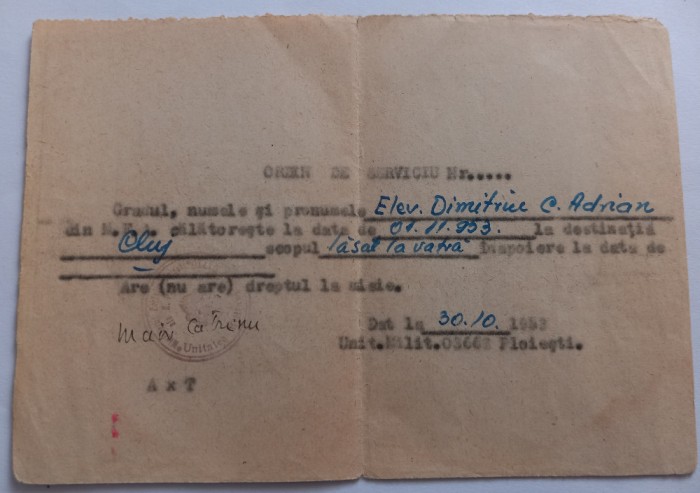 ORDIN DE SERVICIU Nr.....
Gradul, numele și pronumele Elev. Dimitriu C. Adrian
din M. călătorește la data de 01.11.953. la destinația
Cluj scopul lăsat la vatră înapoiere la data de
Are (nu are) dreptul la misie.
Dat la 30.10. 1953
Unit.Milit.03668 Ploiești.
Unitatea
A x T